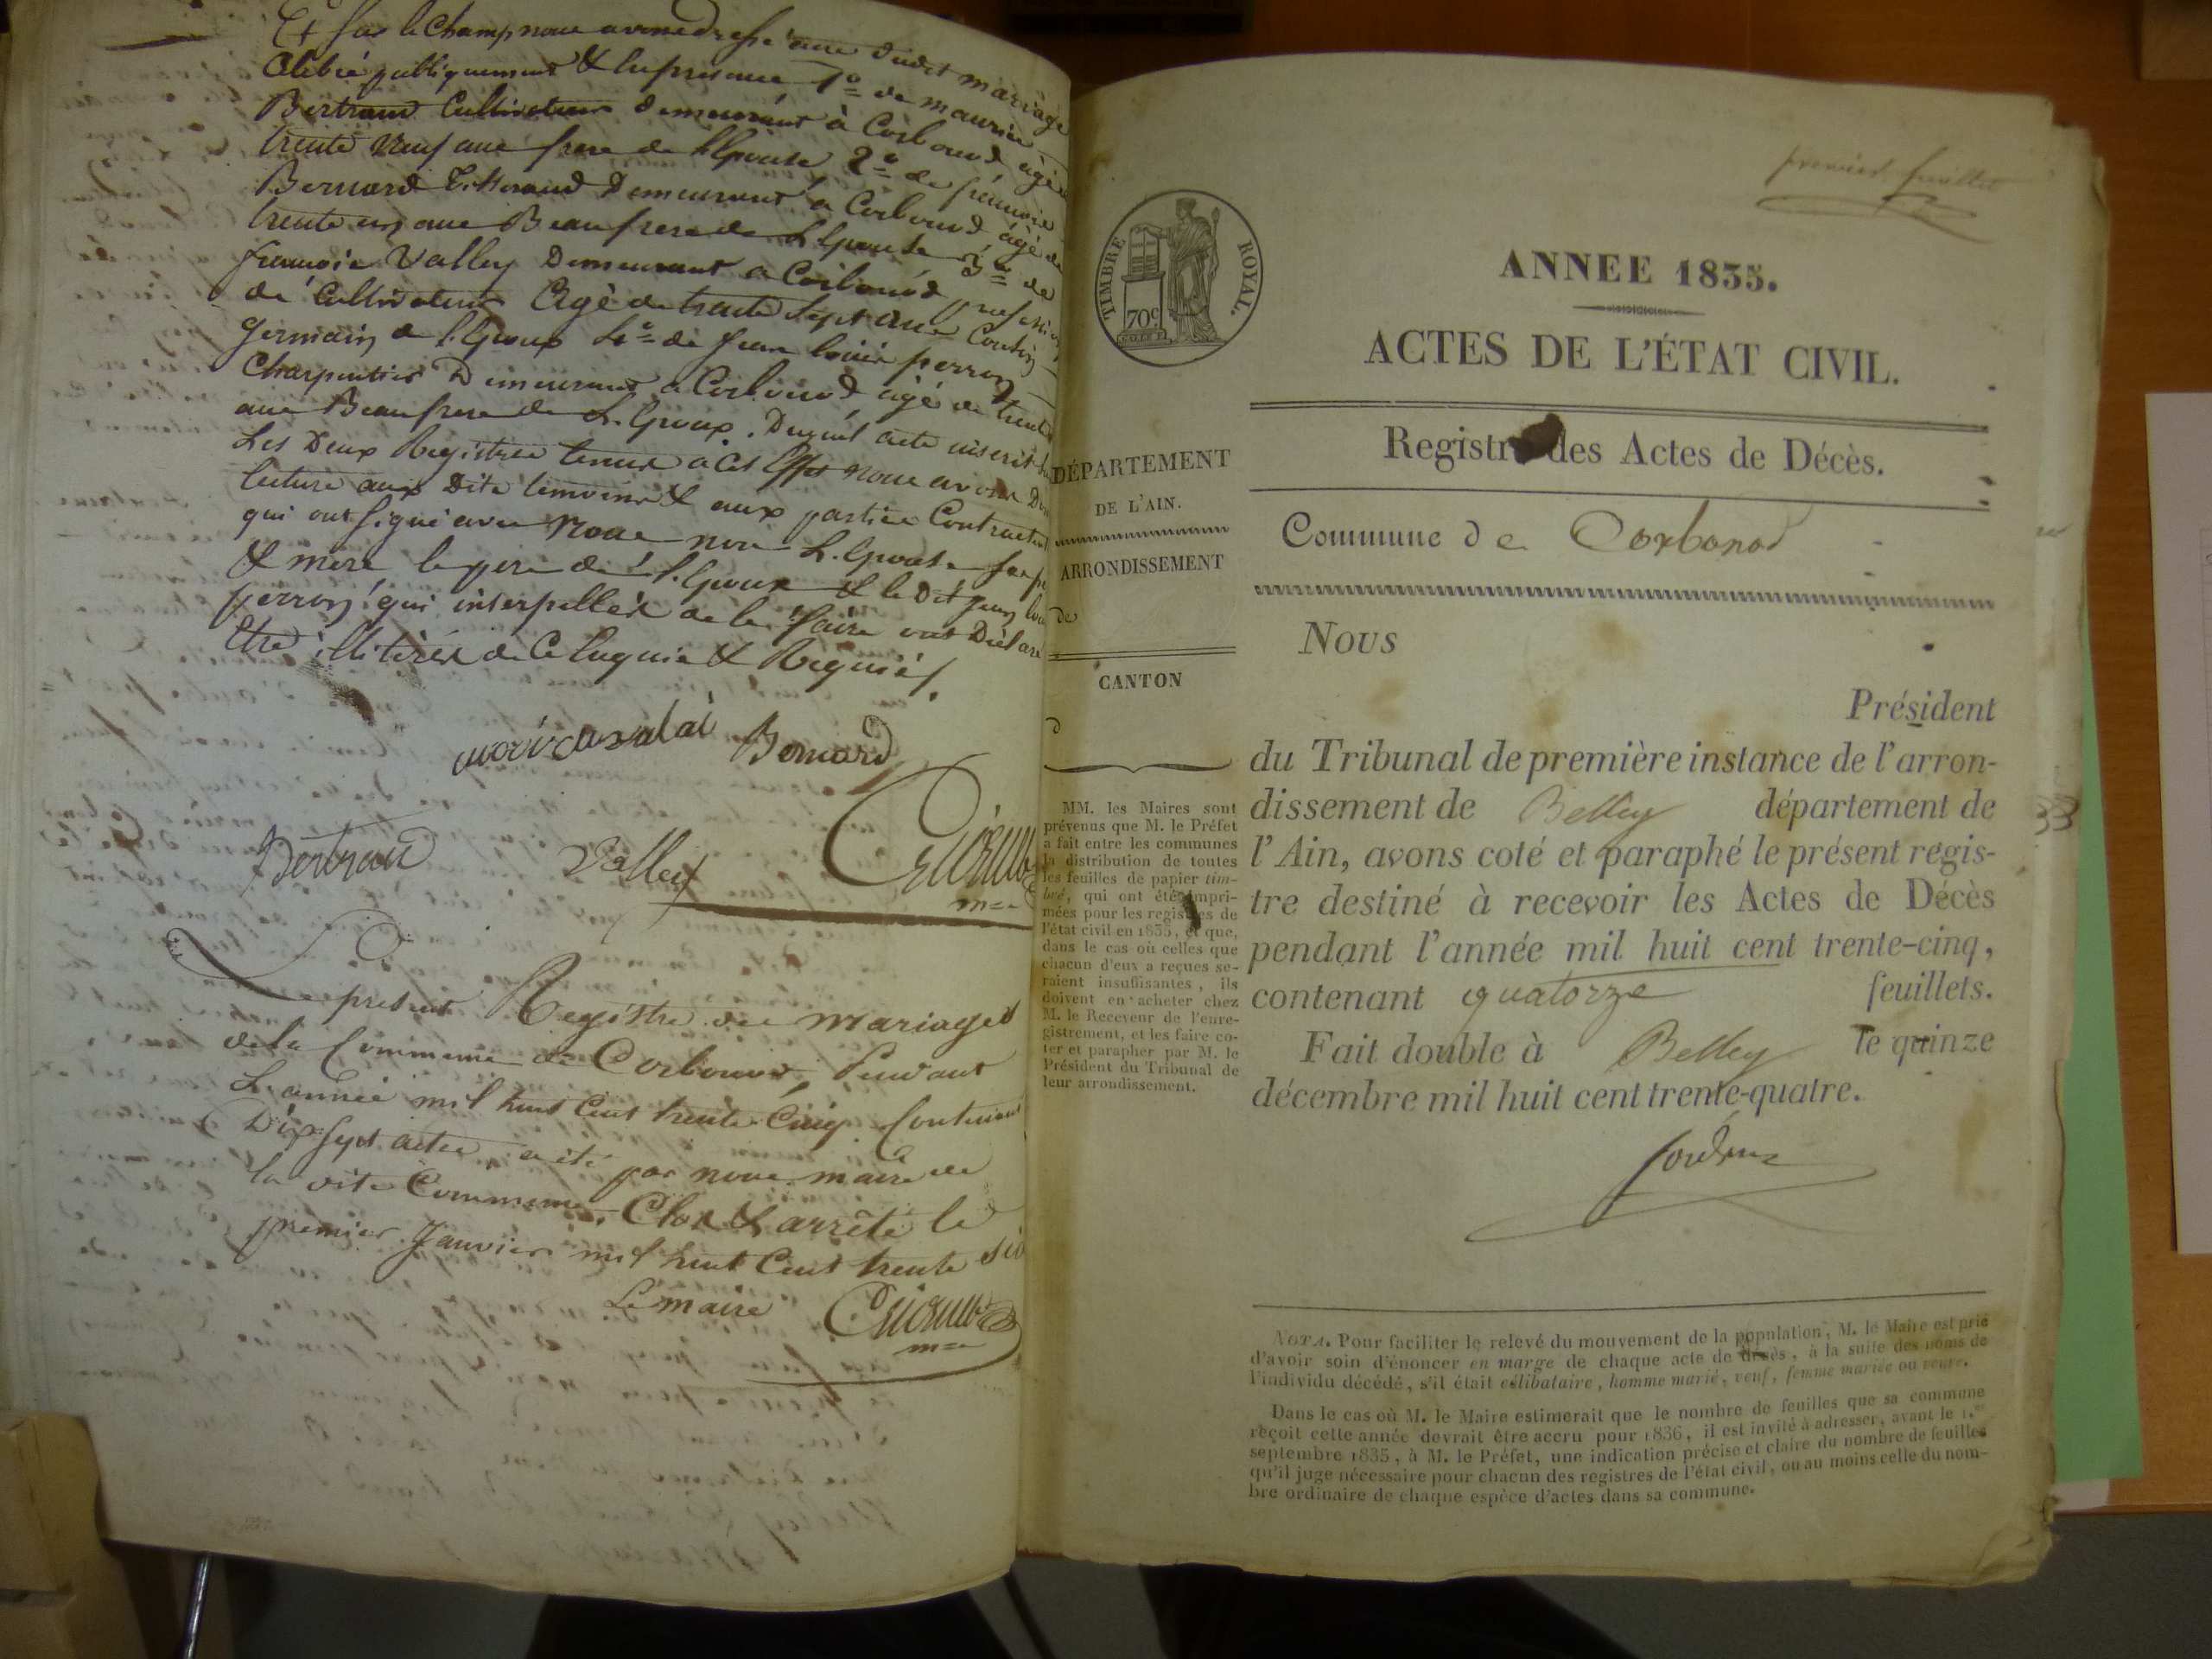 Et sur le Champ nous avons dressé acte dudit mariage
Célébré publiquement & en presence 1° de maurice
Bertrand Cultivateur demeurant à Corbonod agé de
trente neuf ans frere de l'Epouse 2° de françois
Bernard Tisserand Demeurant a Corbonod âgé de
trente un ans Beaufrere de L'Epouse 3° de
françois Valley Demeurant a Corbonod profession
de Cultivateur Agé de trente sept ans Cousin
germain de l'Epoux 4° de Jean louis perron
Charpentier Demeurant a Corbonod agé de trente
ans Beaufrere de L'Epoux. Duquel acte inscrit sur
Les Deux Registres tenus a Cet Effet nous avons Donné
lecture aux Dits temoins & aux parties Contractantes
qui ont signé avec Nous non L'Epouse ses pere
& mere le pere de l'Epoux & le Dit Jean louis
perron qui interpellés de le faire ont Déclaré
Etre illitérés de Ce Enquis & Requis
Bernard
Bertrand
Valley
m=e
Le présent Registre des mariages
de la Commune de Corbonod, Pendant
L'année mil huit Cent trente Cinq Contenant
Dix Sept actes a été par nous maire de
la dite Commune, Clos & arrêté le
premier Janvier mil huit Cent trente six
Le maire
m=e
premier feuillet
TIMBRE ROYAL.
70c
ANNEE 1835.
ACTES DE L'ÉTAT CIVIL.
Registre des Actes de Décès.
DÉPARTEMENT
DE L'AIN.
ARRONDISSEMENT
de
CANTON
d
MM. les Maires sont
prévenus que M. le Préfet
a fait entre les communes
la distribution de toutes
les feuilles de papier tim-
bré, qui ont été impri-
mées pour les registres de
l'état civil en 1835, et que,
dans le cas où celles que
chacun d'eux a reçues se-
raient insuffisantes, ils
doivent en acheter chez
M. le Receveur de l'enre-
gistrement, et les faire co-
ter et parapher par M. le
Président du Tribunal de
leur arrondissement.
Commune de Corbonod
Nous
Président
du Tribunal de première instance de l'arron-
dissement de Belley département de
l'Ain, avons coté et paraphé le présent regis-
tre destiné à recevoir les Actes de Décès
pendant l'année mil huit cent trente-cinq,
contenant quatorze feuillets.
Fait double à Belley le quinze
décembre mil huit cent trente-quatre.
NOTA. Pour faciliter le relevé du mouvement de la population, M. le Maire est prié
d'avoir soin d'énoncer en marge de chaque acte de décès, à la suite des noms de
l'individu décédé, s'il était célibataire, homme marié, veuf, femme mariée ou veuve.
Dans le cas où M. le Maire estimerait que le nombre de feuilles que sa commune
reçoit cette année devrait être accru pour 1836, il est invité à adresser, avant le 1.er
septembre 1835, à M. le Préfet, une indication précise et claire du nombre de feuilles
qu'il juge nécessaire pour chacun des registres de l'état civil, ou au moins celle du nom-
bre ordinaire de chaque espèce d'actes dans sa commune.